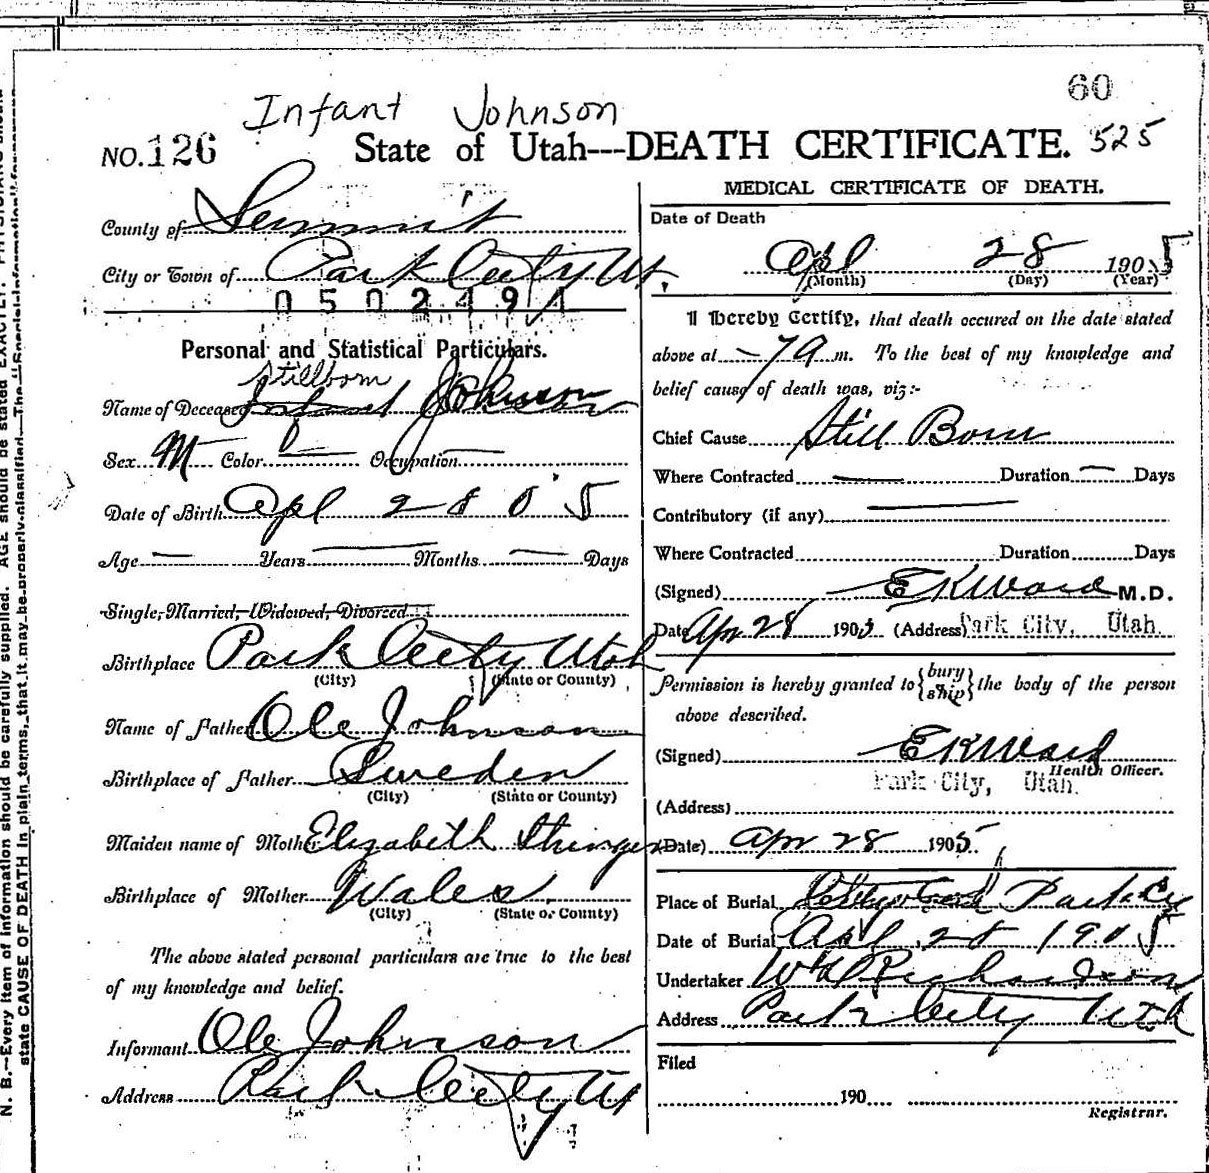 60
Infant Johnson
NO. 126 State of Utah---DEATH CERTIFICATE. 525
County of Summit
City or Town of Park City Ut
0502494
Personal and Statistical Particulars.
Stillborn
Name of Deceased Infant Johnson
Sex M Color Occupation
Date of Birth Apl 28 05
Age Years Months Days
Single, Married, Widowed, Divorced
Birthplace Park City Utah
(City) (State or County)
Name of Father Ole Johnson
Birthplace of Father Sweden
(City) (State or County)
Maiden name of Mother Elizabeth Stringer
Birthplace of Mother Wales
(City) (State or County)
The above stated personal particulars are true to the best
of my knowledge and belief.
Informant Ole Johnson
Address Park City Ut
MEDICAL CERTIFICATE OF DEATH.
Date of Death
Apl 28 1905
(Month) (Day) (Year)
I Hereby Certify, that death occured on the date stated
above at 7 a m. To the best of my knowledge and
belief cause of death was, viz:-
Chief Cause Still Born
Where Contracted Duration Days
Contributory (if any)
Where Contracted Duration Days
(Signed) E K Ward M.D.
Date Apr 28 1905 (Address) Park City, Utah.
Permission is hereby granted to {bury ship} the body of the person
above described.
(Signed) E K Ward
Health Officer.
Park City, Utah.
(Address)
(Date) Apr 28 1905
Place of Burial Park City
Date of Burial Apl 28 1905
Undertaker Richardson
Address Park City Utah
Filed
190
Registrar.
N. B.—Every item of information should be carefully supplied. AGE should be stated EXACTLY. PHYSICIANS should
state CAUSE OF DEATH in plain terms, that it may be properly classified. The